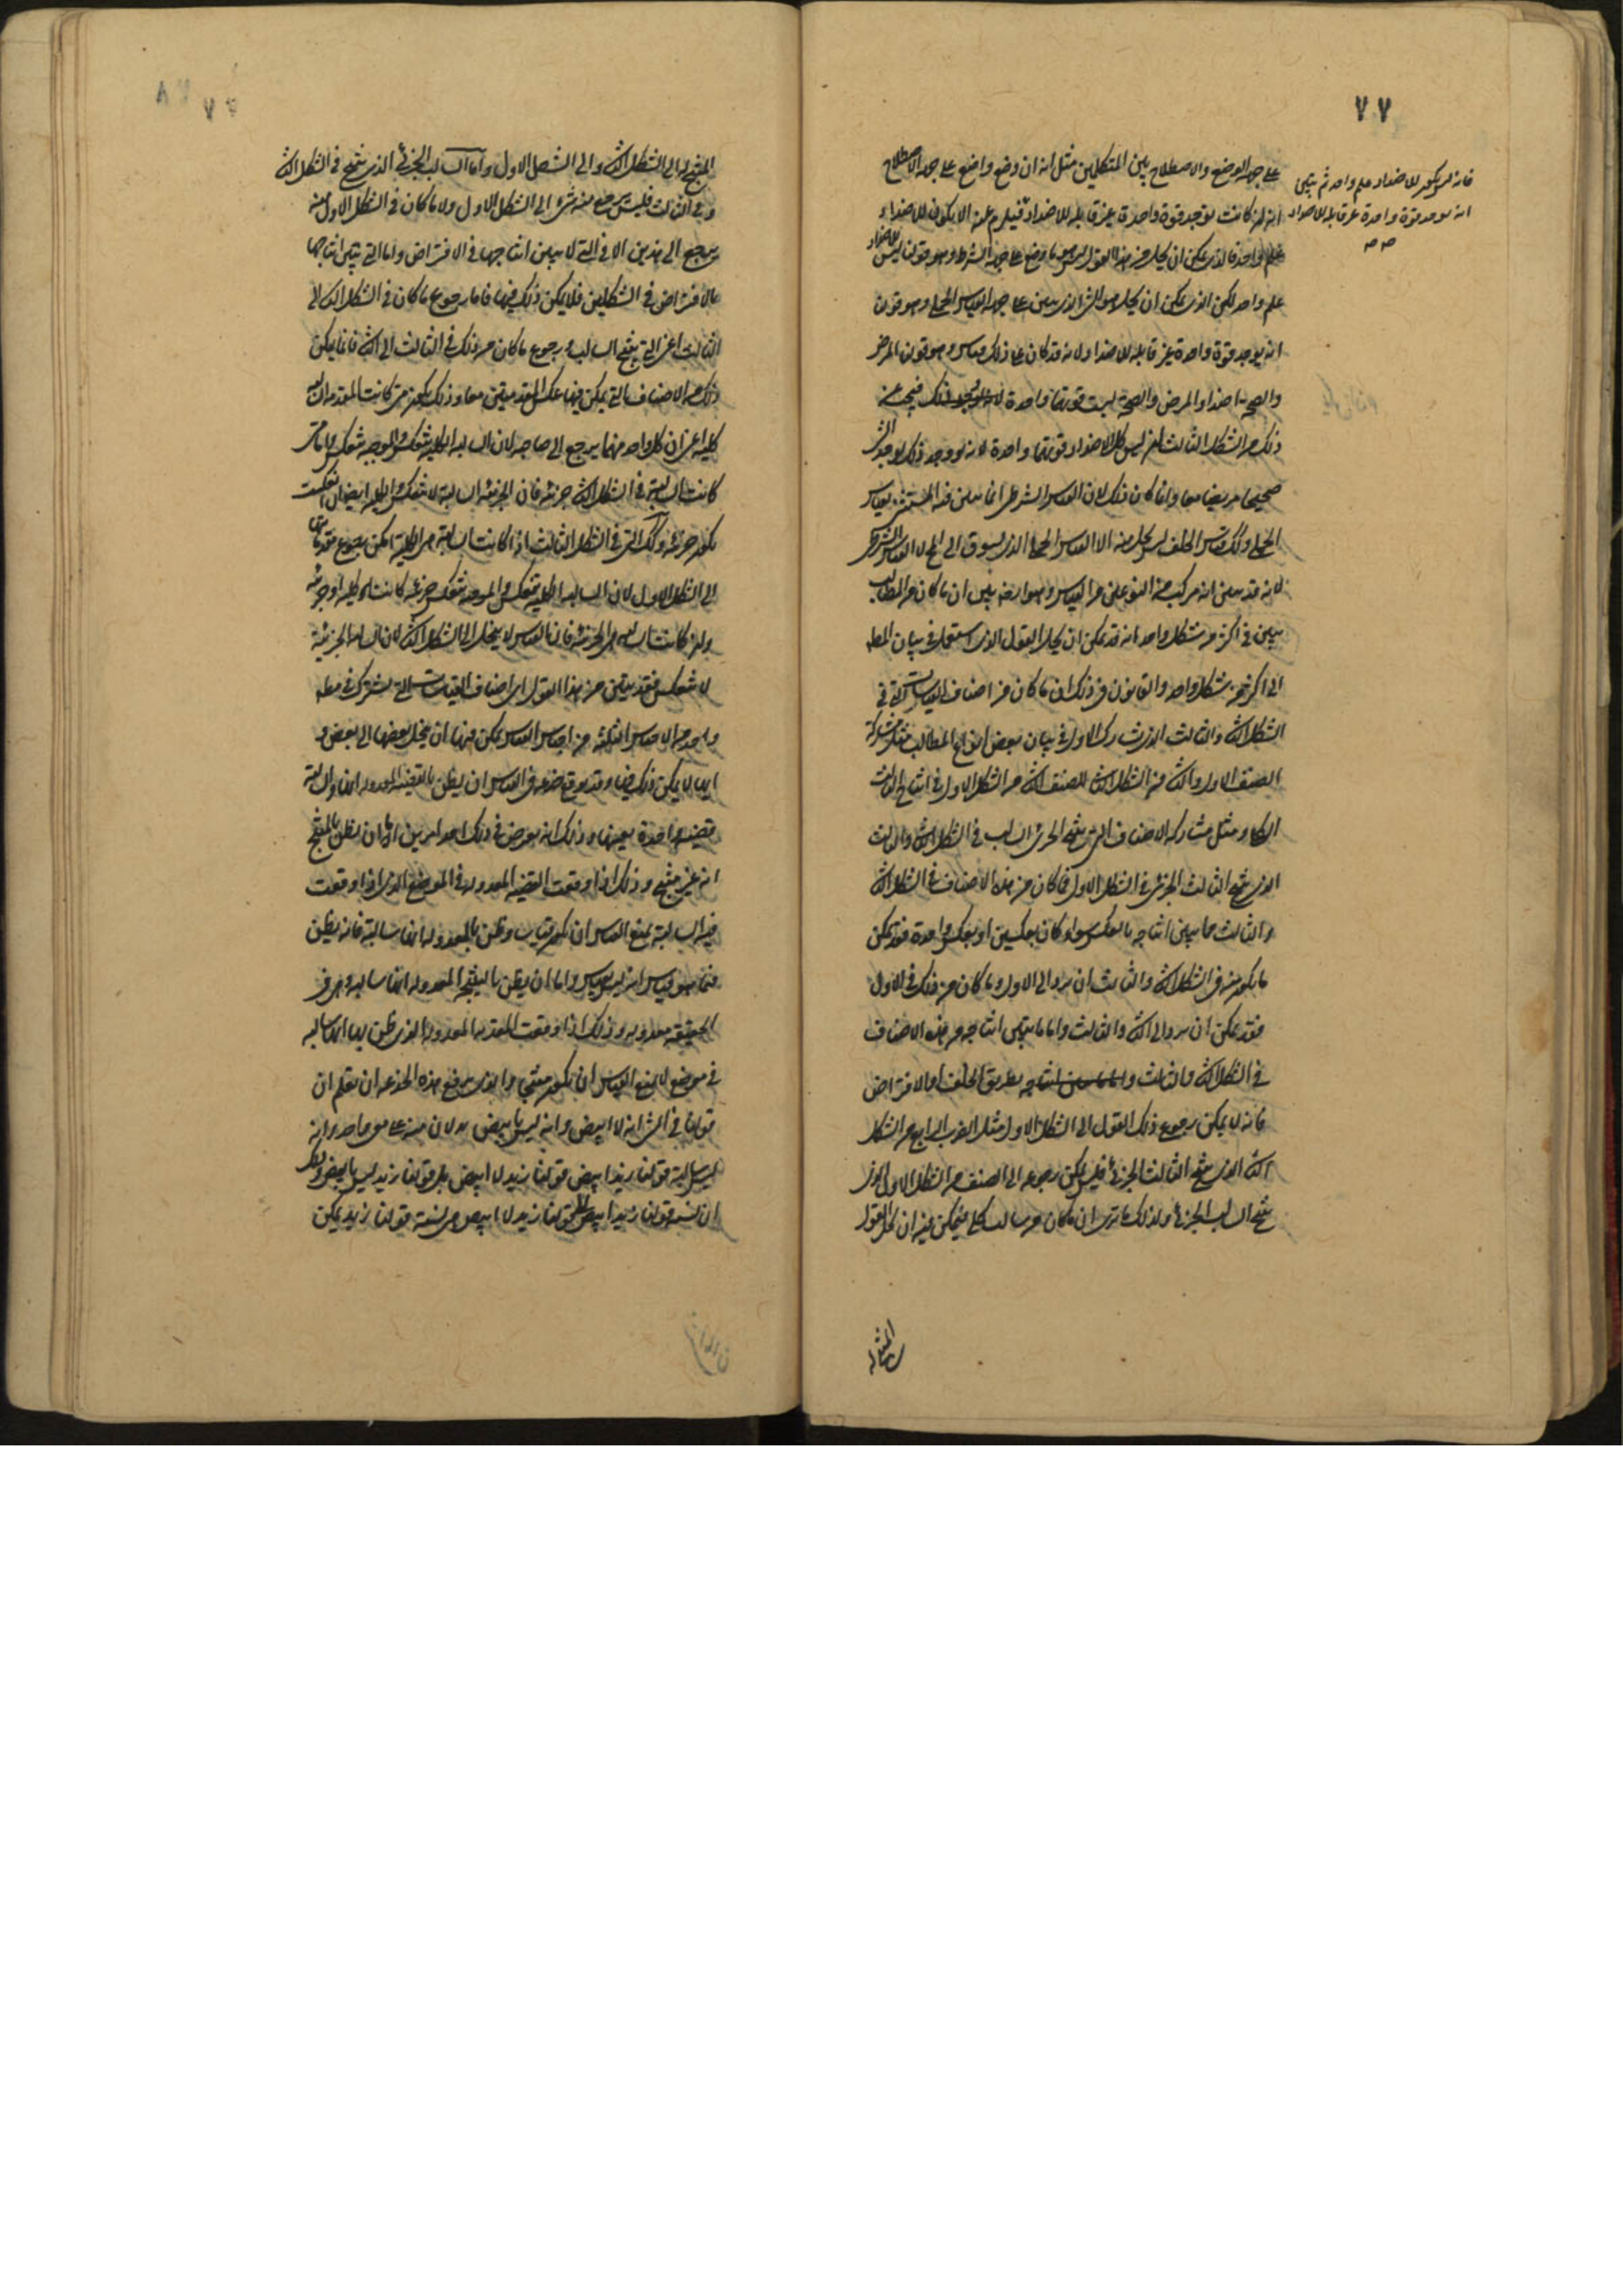 ٧٧
على جهة الوضع والاصطلاح بين المتكلمين مثل انه ان وضع واضع على جهة الاصطلاح
انه ان كانت توجد قوة واحدة غير قابلة للاضداد فيلزم عنه الا يكون للاضداد
علم واحد فالذي يمكن ان يحل من هذا القول ليس هو ما وضع على جهة الشرط وهو قولنا ليس للاضداد
علم واحد لكن الذي يمكن ان يحل هو الشئ الذي يبين على جهة القياس الحملي وهو قولنا
انه يوجد قوة واحدة غير قابلة للاضداد لانه قد كان على ذلك قياس وهو قولنا المرض
والصحة اضداد والمرض والصحة ليست قوتهما واحدة فينتج عن
ذلك من الشكل الثالث ان ليس كل الاضداد قوتهما واحدة لانه لو وجد ذلك لوجد الشئ
صحيحا مريضا معا وانما كان ذلك لان القياس الشرطي انما يبين فيه المستثنى بقياس
الحملي وكذلك قياس الخلف ليس يحل منه الا القياس الحملي الذي يسوق الى المحال لا القياس الشرطي
لانه قد تبين انه مركب من النوعين من القياس وهو ايضا بين ان ما كان من المطالب
يبين في اكثر من شكل واحد انه قد يمكن ان يحل القول الذي استعمل في بيان المطلوب
الى اكثر من شكل واحد والقانون في ذلك ان ما كان من اصناف القياسات التي في
الشكل الثاني والثالث الذي تشارك الاول في بيان بعض انواع المطالب مثل مشاركة
الصنف الاول والثاني من الشكل الثاني للصنف الثاني من الشكل الاول في انتاج السالب
الكلي ومثل مشاركة الاصناف التي تنتج الجزئي السالب في الشكل الثاني والثالث
الذي ينتج الثالث الجزئي في الشكل الاول فما كان من هذه الاصناف في الشكل الثاني
والثالث مما يبين انتاجه بالعكس سواء كان بعكسين او بعكس واحدة فقد يمكن
ما يكون منه في الشكل الثاني والثالث ان يرد الى الاول وما كان من ذلك في الاول
فقد يمكن ان يرد الى الثاني والثالث واما ما يتبين انتاجه من هذه الاصناف
في الشكل الثاني والثالث بطريق الخلف او الافتراض
فانه لا يمكن رجوع ذلك القول الى الشكل الاول مثل الضرب الرابع من الشكل
الثاني الذي ينتج الثالث الجزئي فليس يمكن رجوعه الى الصنف من الشكل الاول الذي
ينتج السالب الجزئي ولذلك ما ترى ان ما كان من سالب كلي فيمكن فيه ان يحل القول
فانه ليس يكون للاضداد علم واحد ثم يتبين
انه يوجد قوة واحدة غير قابلة للاضداد
صح
المنتج له الى الشكل الثاني والى الشكل الاول واما السالب الجزئي الذي ينتج في الشكل الثاني
وفي الثالث فليس يرجع منه شئ الى الشكل الاول ولا ما كان في الشكل الاول منه
يرجع الى هذين الا في التي لا يبين انتاجها في الافتراض واما التي يتبين انتاجها
بالافتراض في الشكلين فلا يمكن ذلك فيها فاما رجوع ما كان في الشكل الثاني الى
الثالث اعني التي ينتج السالب ورجوع ما كان من ذلك في الثالث الى الثاني فانما يمكن
ذلك من الاصناف التي يمكن فيها عكس المقدمتين معا وذلك يكون متى كانت المقدمة السالبة
كلية اعني ان كل واحد منهما يرجع الى صاحبه لان السالبة الكلية تنعكس والموجبة تنعكس فاما متى
كانت السالبة في الشكل الثاني جزئية فان الجزئية السالبة لا تنعكس والكلية ايضا ان انعكست
تكون جزئية وكذلك التي في الشكل الثالث اذا كانت السالبة هي الكلية امكن رجوع مقدماتها
الى الشكل الاول لان السالبة الكلية تنعكس والموجبة تنعكس جزئية كانت كلية او جزئية
وان كانت السالبة هي الجزئية فان القياس لا يحل الى الشكل الثاني لان السالبة الجزئية
لا تنعكس فقد تبين من هذا القول اي اصناف القياسات التي تشترك في مطلوب
واحد من الاجناس الثلاثة من اجناس القياس يمكن فيها ان ينحل بعضها الى بعض و
ايها لا يمكن ذلك فيها وقد يوقع خدعة في القياس ان يظن بالقضية المعدولة انها والسالبة
قضية واحدة بعينها وذلك انه يعرض في ذلك احد امرين اما ان يظن بالمنتج
انه غير منتج وذلك اذا وقعت القضية المعدولة في الموضع الذي اذا وقعت
فيه السالبة يمنع القياس ان يكون قياسا وظن بالمعدولة انها سالبة فانه يظن
فيما هو قياس انه ليس بقياس واما ان يظن بالنتيجة المعدولة انها سالبة وهي في
الحقيقة معدولة وذلك اذا وقعت المقدمة المعدولة الذي ظن بها انها سالبة
في موضع لا يمنع القياس ان يكون منتجا والذي يرفع هذه الخدعة ان نعلم ان
قولنا في الشئ انه لا ابيض وانه ليس بابيض يدلان منه على معنى واحد وانه
ليس سالبة قولنا زيد ابيض قولنا زيد لا ابيض بل قولنا زيد ليس بابيض وذلك
ان نسبة قولنا زيد ابيض الى قولنا زيد لا ابيض هي نسبة قولنا زيد يمكن